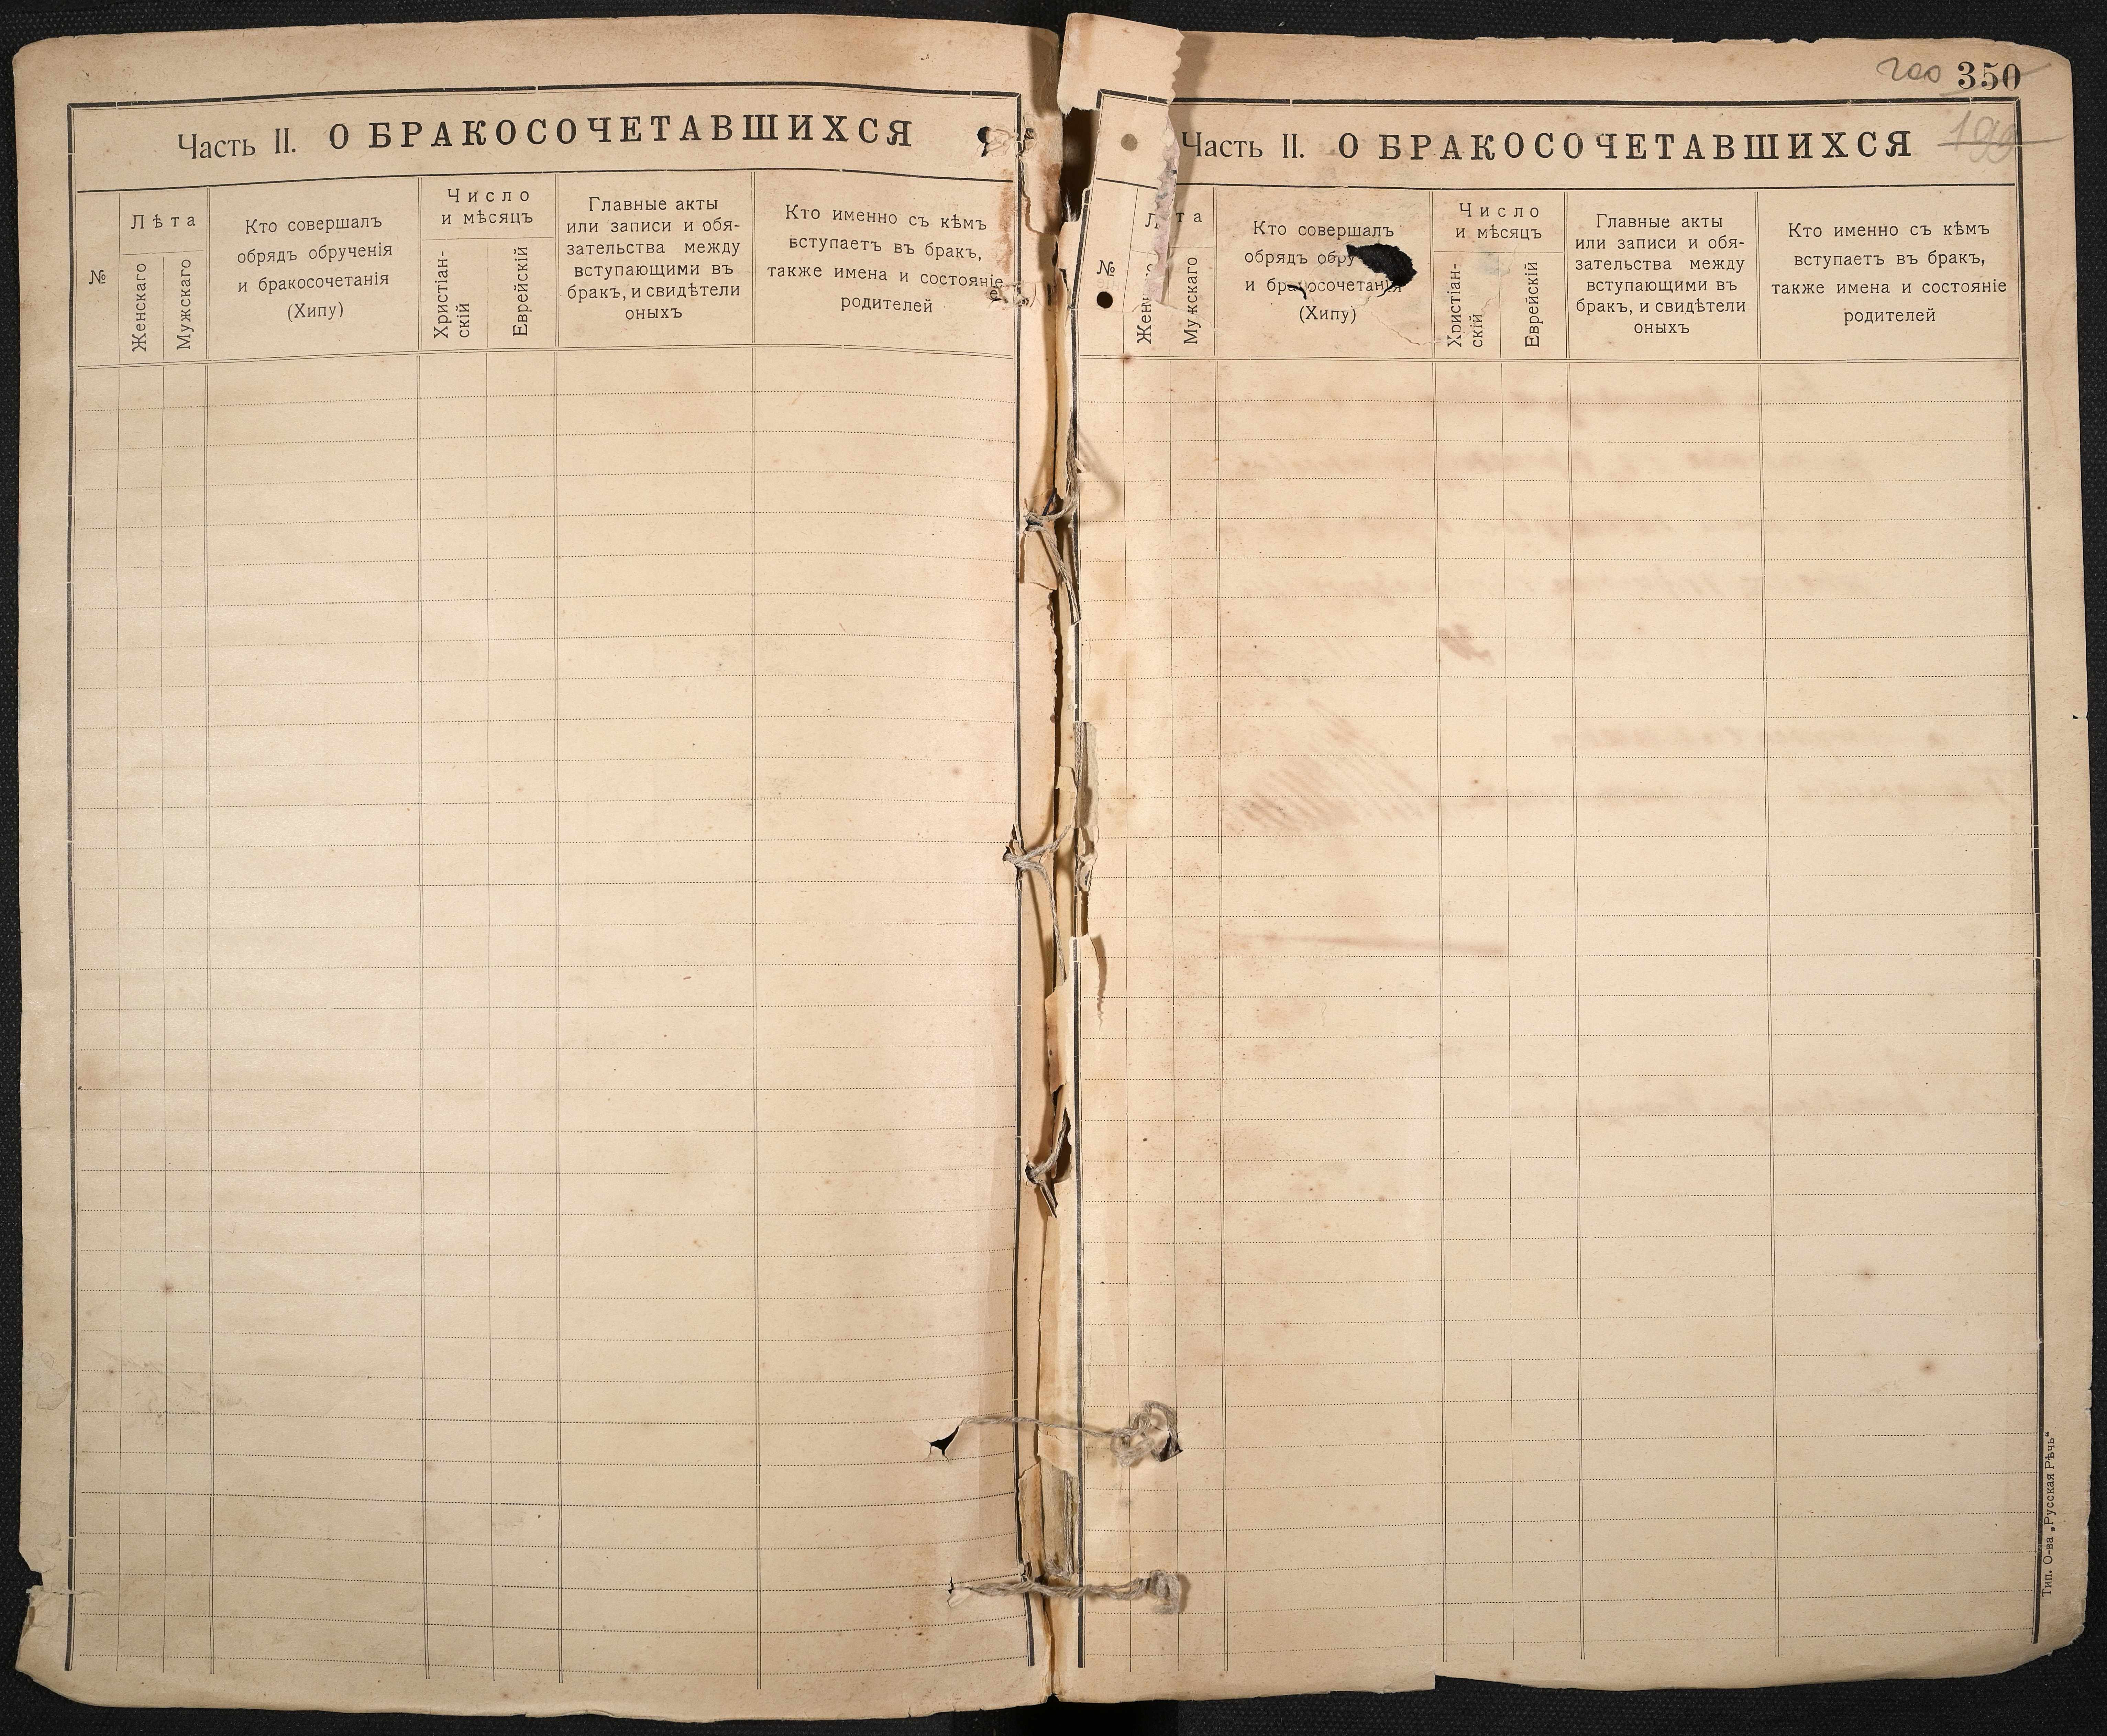 Часть II. О БРАКОСОЧЕТАВШИХСЯ
№
Лѣта
Женскаго
Мужскаго
Кто совершалъ
обрядъ обрученія
и бракосочетанія
(Хипу)
Число
и мѣсяцъ
Христіан-
скій
Еврейскій
Главные акты
или записи и обя-
зательства между
вступающими въ
бракъ, и свидѣтели
оныхъ
Кто именно съ кѣмъ
вступаетъ въ бракъ,
также имена и состояніе
родителей
200 350
199
Часть II. О БРАКОСОЧЕТАВШИХСЯ
№
Лѣта
Жен
Мужскаго
Кто совершалъ
обрядъ обру
и бракосочетанія
(Хипу)
Число
и мѣсяцъ
Христіан-
скій
Еврейскій
Главные акты
или записи и обя-
зательства между
вступающими въ
бракъ, и свидѣтели
оныхъ
Кто именно съ кѣмъ
вступаетъ въ бракъ,
также имена и состояніе
родителей
Тип. О-ва „Русская Рѣчь“